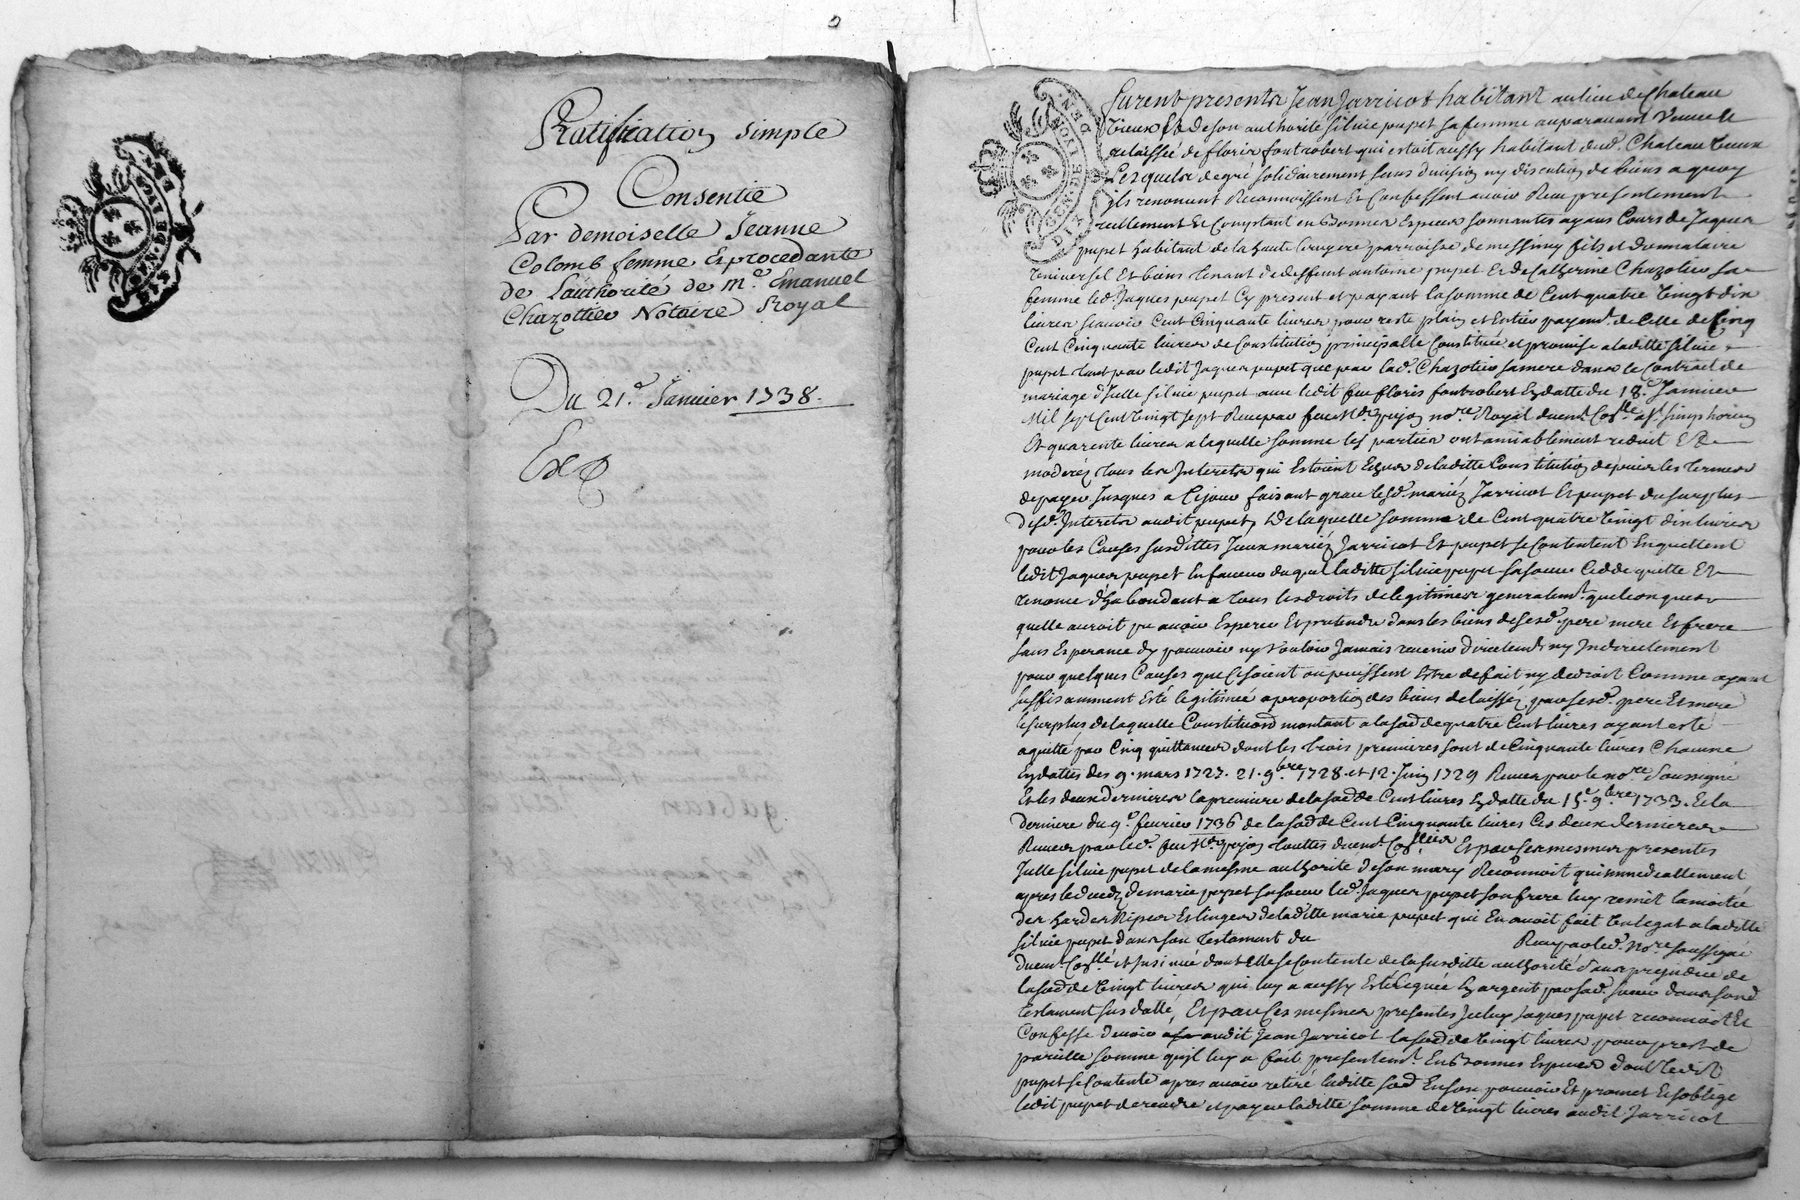 GEN. DE LYON
DIX DEN.
Ratification simple
Consentie
Par demoiselle Jeanne
Colomb femme Esprocedante
de Lauthorité de Me. Emanuel
Chazottier Notaire Royal
Du 21e. Janvier 1738.
GEN. DE LYON
DIX DEN.
furent presents Jean Jarricot habitant au lieu de Chateau
Vieux Et de son authorité silvie pupet sa femme auparavant Veuve Et
delaissée de floris fontrobert qui estoit aussy habitant dud. Chateau Vieux
Lesquels de gré solidairement sans division ny discution de biens a quoy
ils renoncent Reconnoissent Et Confessent avoir Receu presentement
reellement Et Comptant en Bonnes Especes sonnantes ayans Cours de Jaques
pupet habitant de la haute bruyere parroisse de messimy fils et donnataire
Universel Et biens tenant de deffunt antoine pupet Et de Catherine Chazotier sa
femme led. Jaques pupet Cy present et payant la somme de Cent quatre Vingt dix
livres scavoir Cent Cinquante livres pour reste plain et Entier payemt. de Celle de Cinq
Cent Cinquante livres de Constitution principalle Constituée et promise a laditte silvie
pupet tant par ledit Jaques pupet que par lad. Chazotier sa mere dans le Contrait de
mariage d'Jelle silvie pupet avec ledit feu floris fontrobert En datte du 18e. Janvier
Mil sept Cent Vingt sept Receu par feu Me pujon nore. Royal duemt. Collé a st. simphorien
Et quarente livres a laquelle somme les parties ont amiablement reduit Et
moderéz tous les Interets qui Estoient Echus de laditte Constitution depuis les termes
de payer Jusques a Cejour faisant grace lesd. mariéz Jarricot Et pupet du surplus
desd. Interets audit pupet, De laquelle somme de Cent quatre Vingt dix livres
pour les Causes susdittes Jceux mariéz Jarricot Et pupet se Contentent Enquittent
ledit Jaques pupet En faveur duquel laditte silvie pupet sa soeur Cedde quitte Et
renonce d'habondant a tous les droits de legitimes generalemt. quelconques
quelle auroit pu avoir Esperer Et pretendre dans les biens de sesd. pere mere Et frere
sans Esperance d'y pouvoir ny Vouloir Jamais revenir directemt. ny Indirectement
pour quelques Causes que Ce soient ou puissent Estre de fait ny de droit Comme ayant
suffisamment Esté legitimée a proportion des biens delaisséz par sesd. pere Et mere
le surplus de laquelle Constitution montant a la sod. de quatre Cent livres ayant esté
aquitté par Cinq quittances dont les trois premieres sont de Cinquante livres Chacune
En dattes des 9. mars 1727. 21. 9bre 1728. et 12. Juin 1729 Receues par le nore soussigné
Et les deux dernieres la premiere de la sod. de Cent livres En datte du 15e. 9bre 1733. Et la
derniere du 9e. fevrier 1736 de la sod. de Cent Cinquante livres Ces deux dernieres
Receues par led. feu Me pujon touttes duemt. Collées Et par Ces mesmes presentes
Jelle silvie pupet de la mesme authorité de son mary Reconnoit qu'immediattement
apres le deceds de marie pupet sa soeur led. Jaques pupet son frere luy remit la moitié
des hardes Nipes Et linges de laditte marie pupet qui En avoit fait Un legat a laditte
silvie pupet dans son Testament du Receu par led. Nore soussigné
duemt. Collé et Insinué dont Elle se Contente de la susditte authorité sans prejudice de
la sod. de Vingt livres qui luy a aussy Esté leguée En argent par sad. soeur dans sond.
testament sus datté, Et par Ces mesmes presentes Jceluy Jaques pupet reconnoit Et
Confesse devoir audit Jean Jarricot la sod. de Vingt livres pour prest de
pareille somme qu'il luy a fait presentemt. En Bonnes Especes dont ledit
pupet se Contente apres avoir retiré laditte sod. En son pouvoir Et promet Et s'oblige
ledit pupet de rendre et payer laditte somme de Vingt livres audit Jarricot